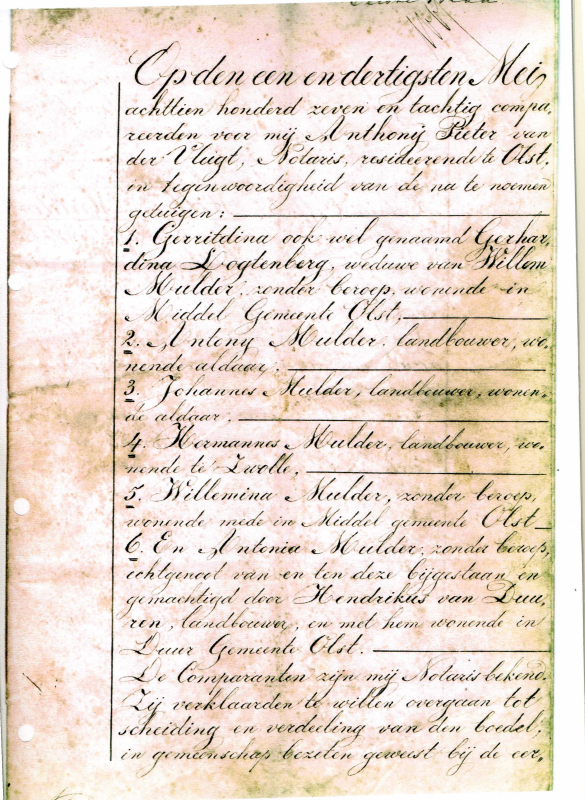 Op den een en dertigsten Mei
achttien honderd zeven en tachtig compa,
reerden voor mij Anthonij Pieter van
der Vlugt, Notaris, resideerende te Olst.
in tegenwoordigheid van de na te noemen
getuigen:
1. Gerritdina ook wel genaamd Gerhar,
dina Logtenberg, weduwe van Willem
Mulder, zonder beroep, wonende in
Middel Gemeente Olst,
2. Antony Mulder, landbouwer, wo,
nende aldaar.
3. Johannes Mulder, landbouwer, wonen,
de aldaar,
4. Hermannes Mulder, landbouwer, wo,
nende te Zwolle,
5. Willemina Mulder, zonder beroep,
wonende mede in Middel gemeente Olst
6. En Antonia Mulder, zonder beroep,
echtgenoot van en ten deze bijgestaan en
gemachtigd door Hendrikus van Duu,
ren, landbouwer, en met hem wonende in
Duur Gemeente Olst.
De Comparanten zijn mij Notaris bekend.
Zij verklaarden te willen overgaan tot
scheiding en verdeeling van den boedel,
in gemeenschap bezeten geweest bij de eer,